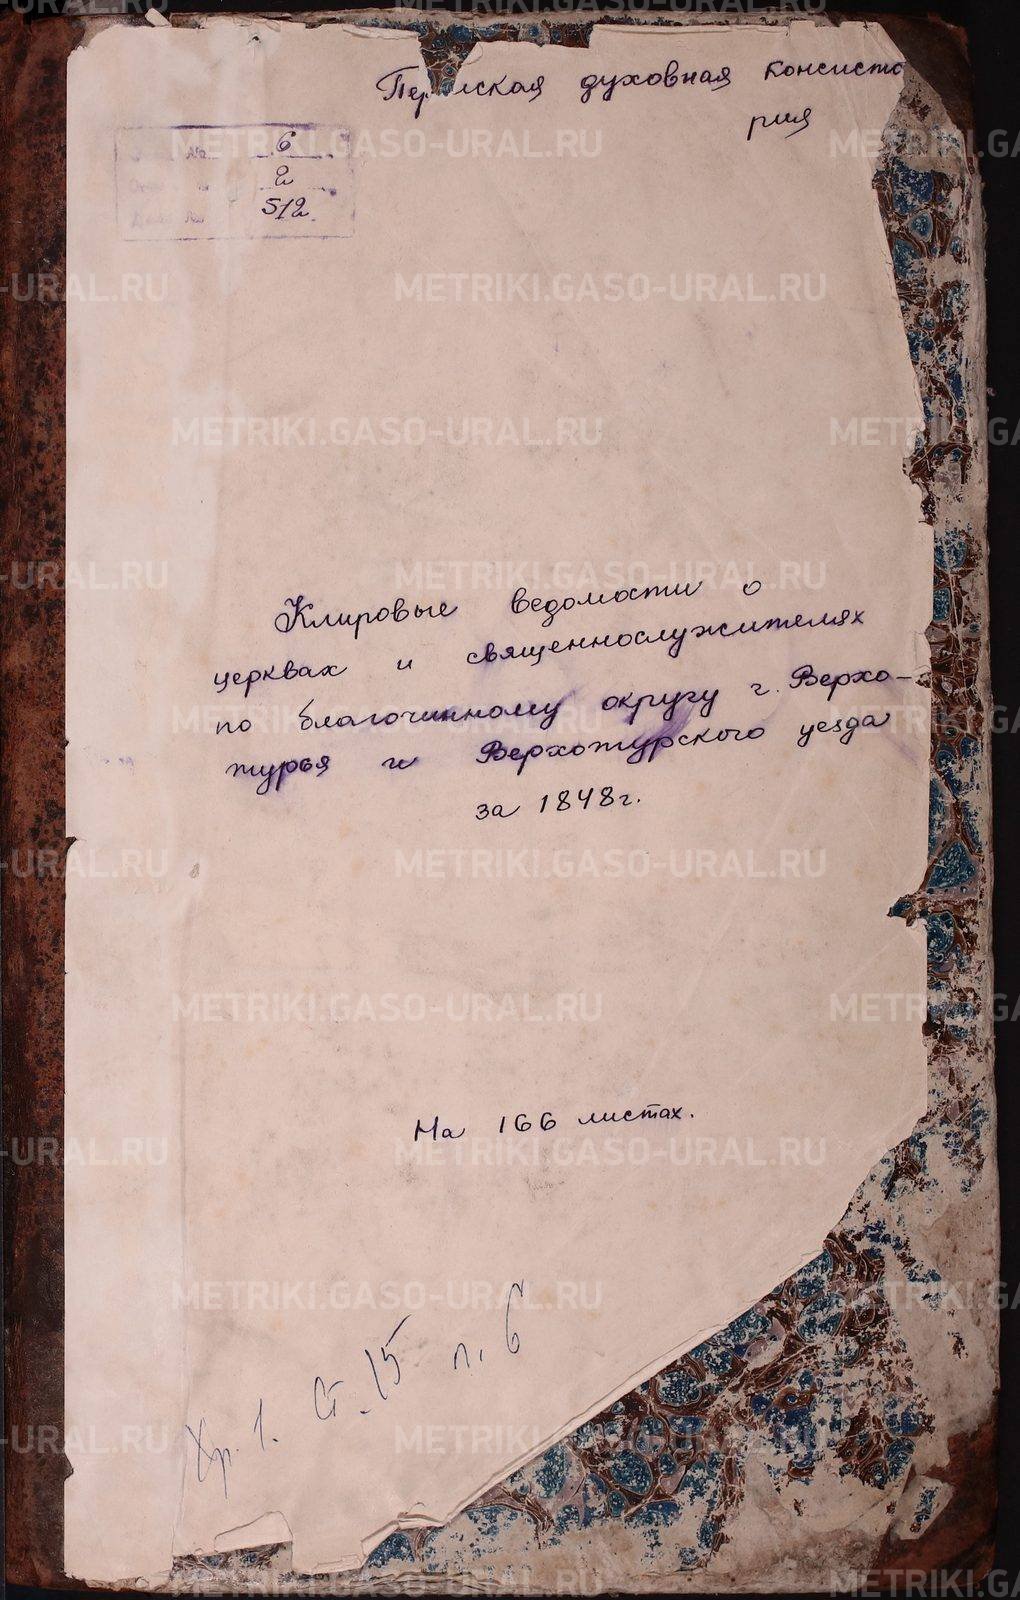 Пермская духовная консисто
рия
6
2
512
Клировые ведомости о
церквах и священнослужителях
по благочинному округу г. Верхо-
турья и Верхотурского уезда
за 1848г.
На 166 листах.
Хр. 1. Ст. 15 п. 6
METRIKI.GASO-URAL.RU